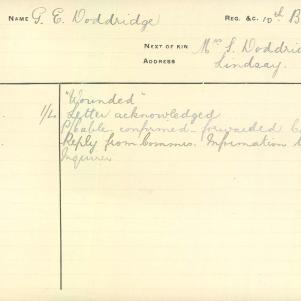 NAME G. E. Doddridge
REG. &C. 10th B
NEXT OF KIN Mrs S. Doddrid
ADDRESS Lindsay.
"Wounded"
1/2 Letter acknowledged
confirmed forwarded
Reply from Commrs. Information t
Inquirer